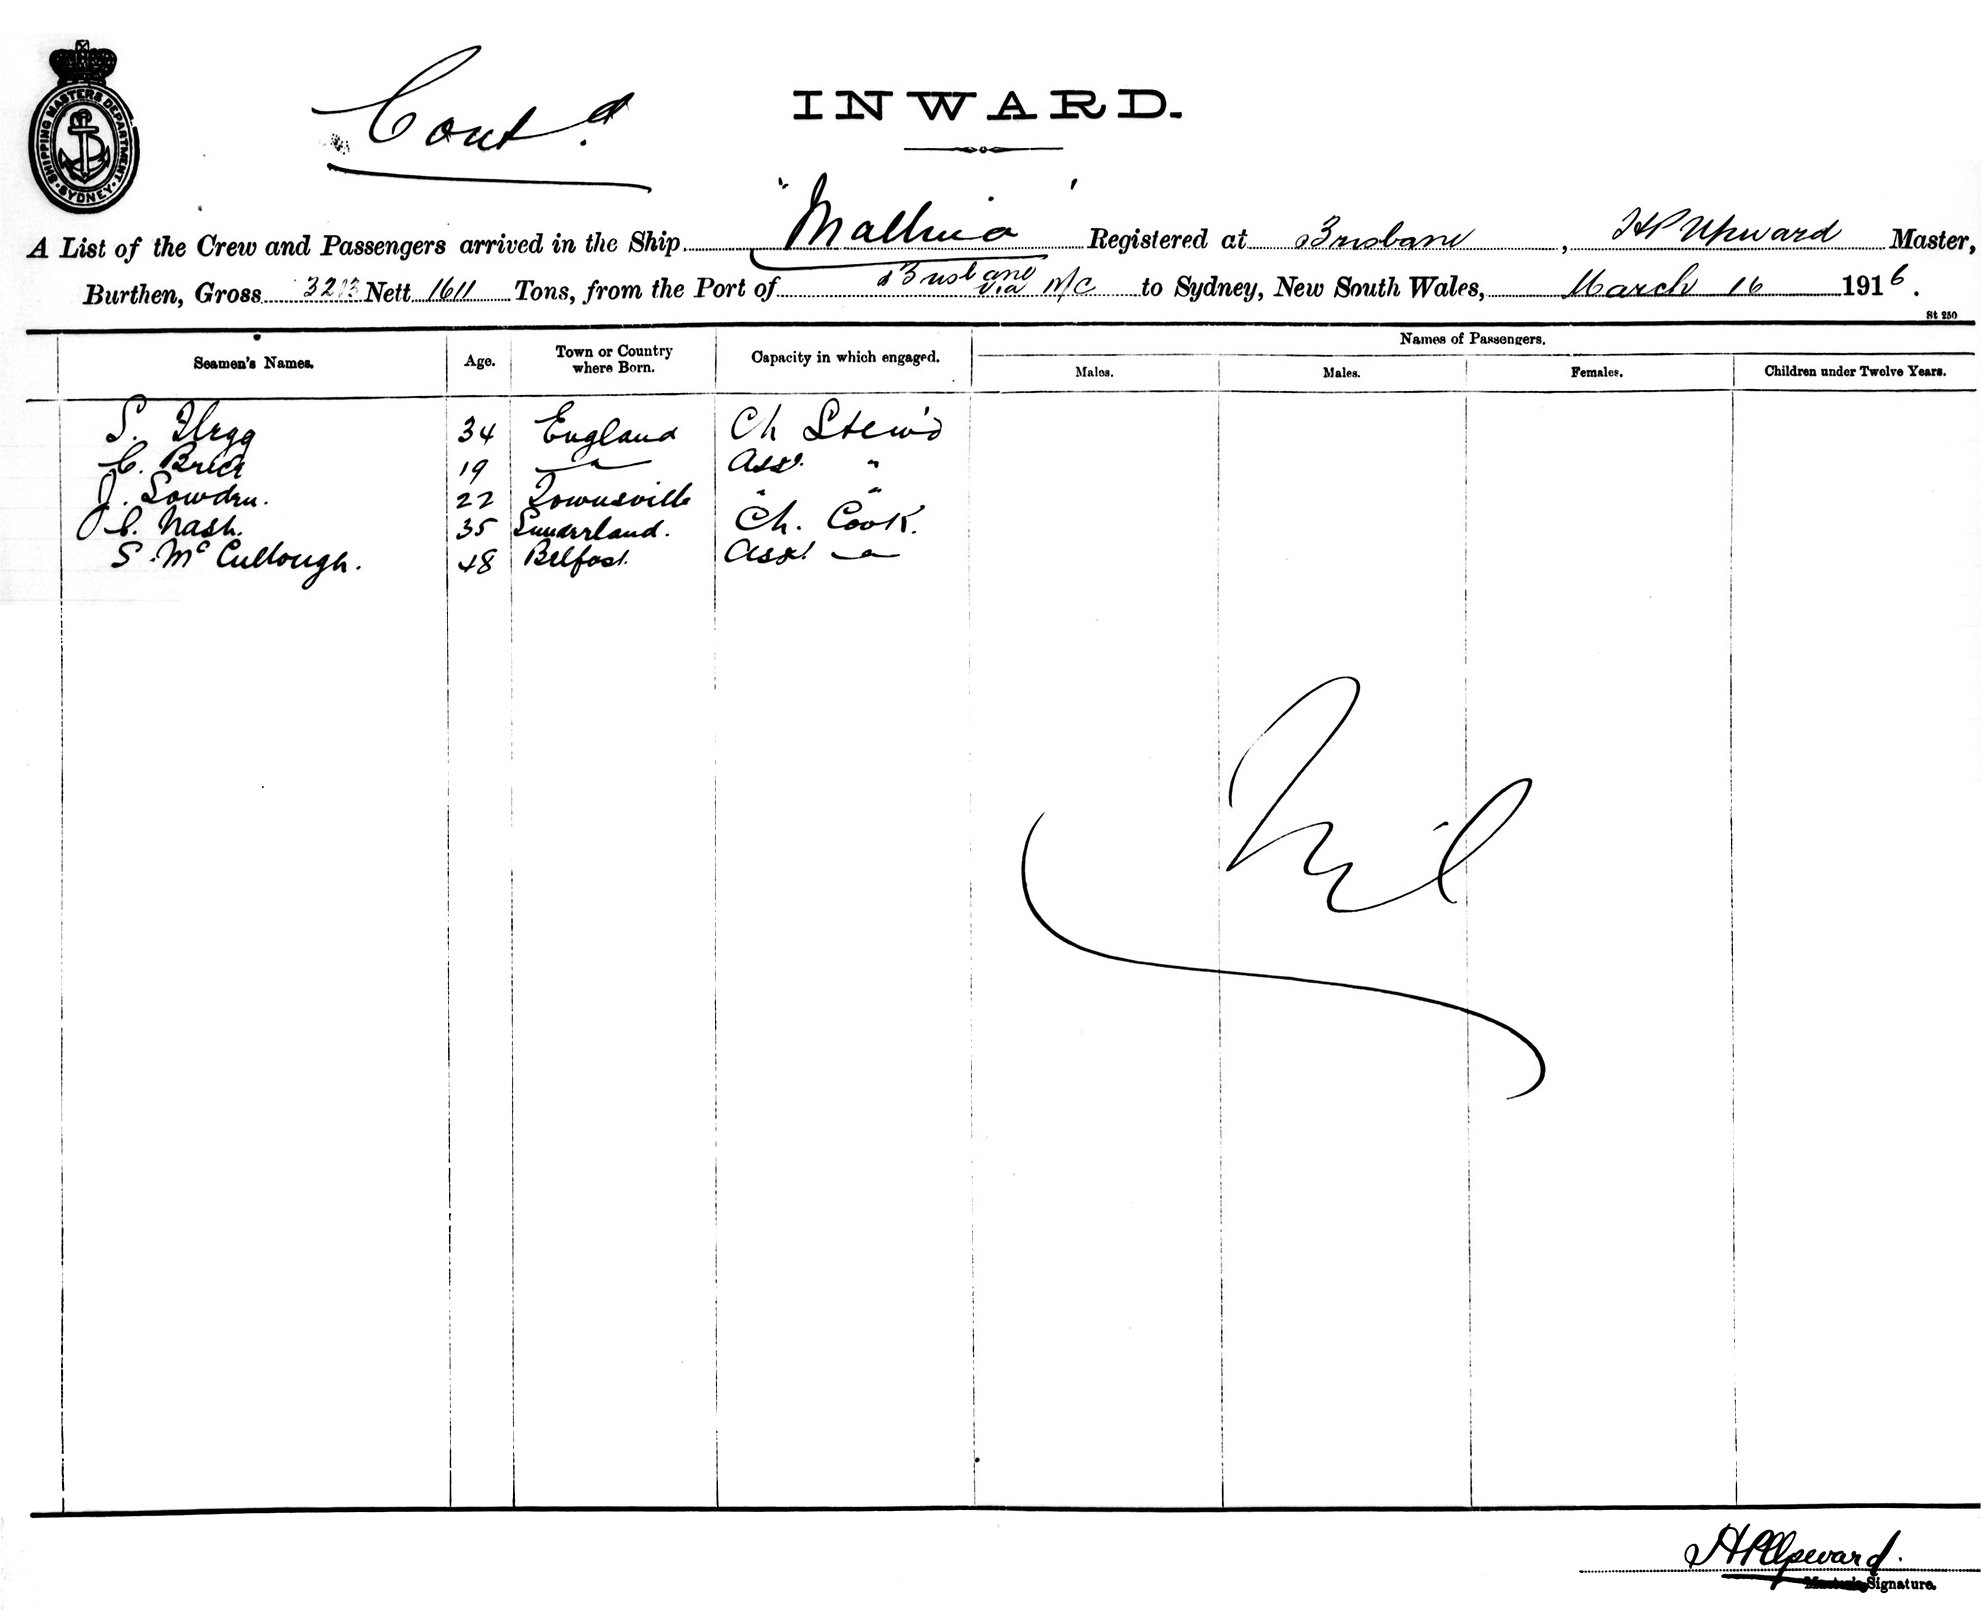 SHIPPING MASTERS DEPARTMENT
SYDNEY
Cont.d
INWARD.
A List of the Crew and Passengers arrived in the Ship "Mallina" Registered at Brisbane, H P Upward Master,
Burthen, Gross 3213 Nett 1611 Tons, from the Port of Brisbane via N/C to Sydney, New South Wales, March 16 1916.
St 250
Seamen's Names. Age. Town or Country where Born. Capacity in which engaged. Names of Passengers.
Males. Males. Females. Children under Twelve Years.
S. 34 England Ch Stew'd
C. 19 " Asst. "
J. Lowden. 22 Townsville " "
J C. Nash. 35 Sunderland. Ch. Cook.
S. McCullough. 48 Belfast. Asst "
Nil
H P Upward.
Master's Signature.